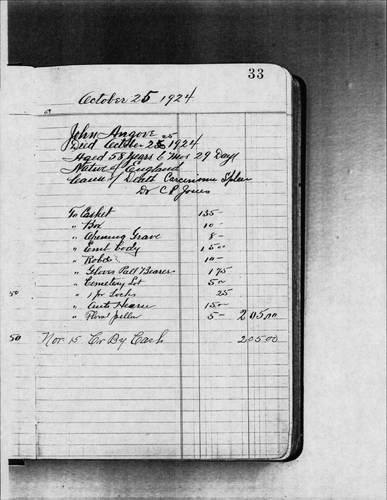 33
October 25 1924
John Angove
Died October 25 1924
Aged 58 Years 6 Mos 29 Days
Native of England
Cause of Death Carcinoma Spleen
Dr C P Jones
To Casket 135-
" Box 10-
" Opening Grave 8-
" Embl body 15 00
" Robe 10-
" Gloves Pall Bearers 1 75
" Cemetery Lot 5-
" 1 pr Socks 25
" Auto Hearse 15-
50 " Floral pillow 5- 205.00
50 Nov. 15 Cr By Cash 205 00